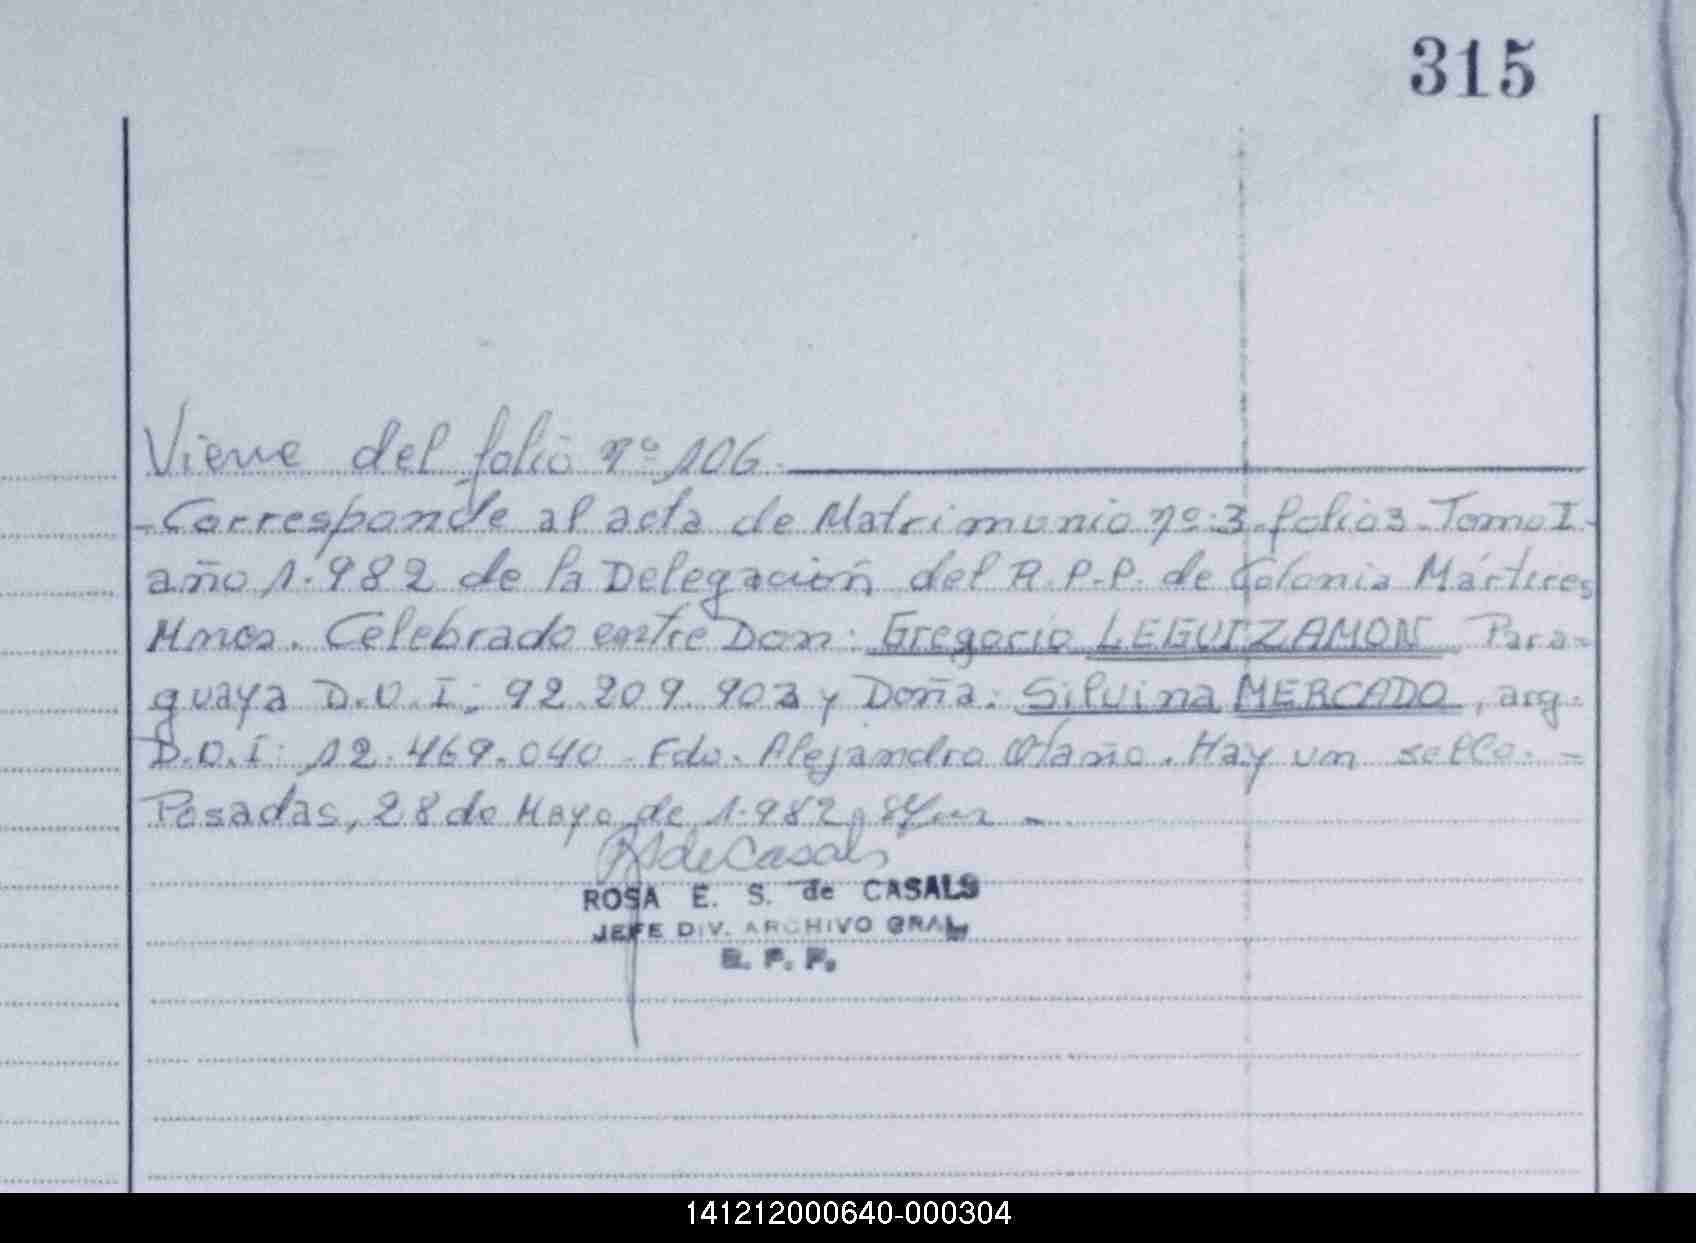 315
Viene del folio nº 106.
-Corresponde al acta de Matrimonio nº:3-folio 3-Tomo I-
año 1.982 de la Delegación del R.P.P. de Colonia Mártires
Mnes. Celebrado entre Don: Gregorio LEGUIZAMON Para-
guaya D.N.I: 92.209.903 y Doña: Silvina MERCADO, arg.-
D.N.I: 12.469.040-Fdo. Alejandro Olaño. Hay un sello.-
Posadas, 28 de Mayo de 1.982.
R S de Casals
ROSA E. S. de CASALS
JEFE DIV. ARCHIVO GRAL.
R. P. P.
141212000640-000304